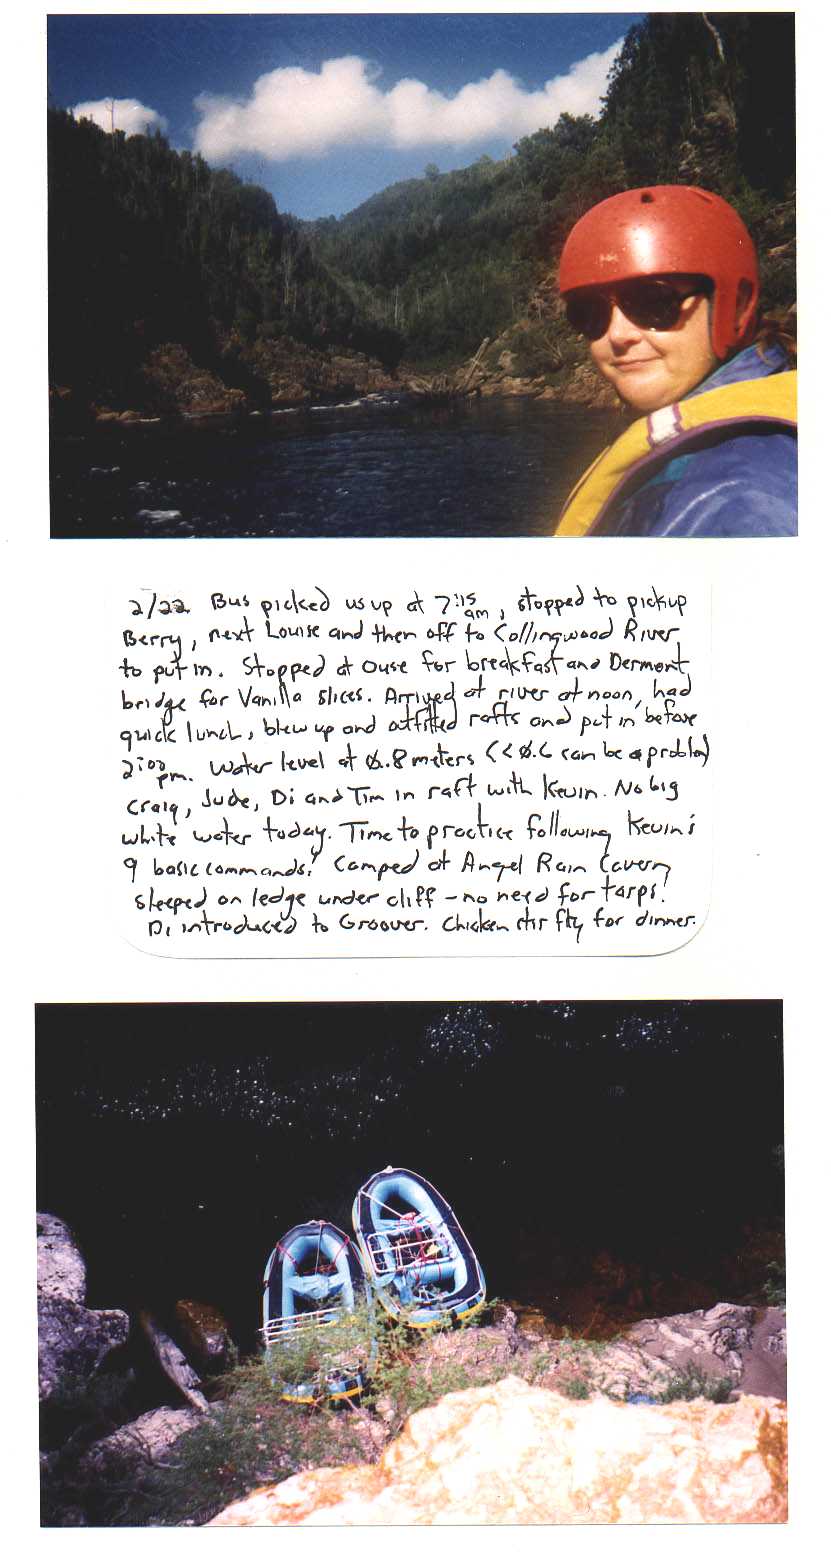 2/22 Bus picked us up at 7:15 am, stopped to pickup
Berry, next Louise and then off to Collingwood River
to put in. Stopped at Ouse for breakfast and Dermont
bridge for Vanilla slices. Arrived at river at noon, had
quick lunch, blew up and outfitted rafts and put in before
2:00 pm. Water level at 0.8 meters (<0.6 can be a problem)
Craig, Jude, Di and Tim in raft with Kevin. No big
white water today. Time to practice following Kevin's
9 basic commands! Camped at Angel Rain Cavern
sleeped on ledge under cliff - no need for tarps!
Di introduced to Groover. Chicken stir fly for dinner.